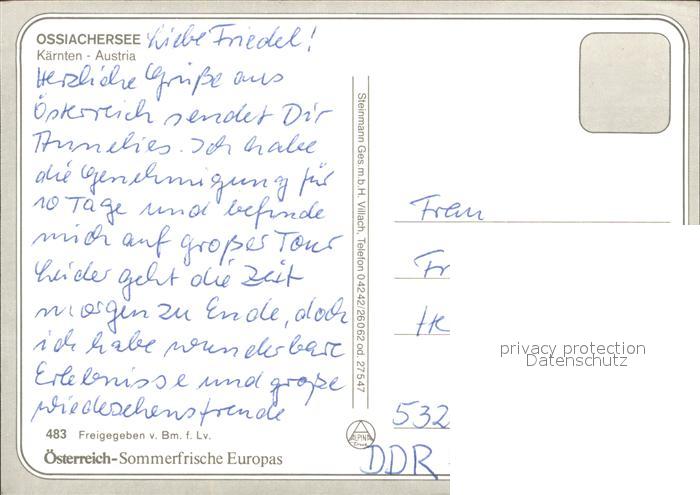 OSSIACHERSEE Liebe Friedel!
Kärnten - Austria
Herzliche Grüße aus
Österreich sendet Dir
Annelies. Ich habe
die Genehmigung für
10 Tage und befinde
mich auf großer Tour
Leider geht die Zeit
morgen zu Ende, doch
ich habe wunderbare
Erlebnisse und große
wiedersehensfreude
483 Freigegeben v. Bm. f. Lv.
Österreich-Sommerfrische Europas
Steinmann Ges.m.b.H. Villach, Telefon 04242/26062 od. 27547
ALPINA
Frau
Fr
He
532
DDR
privacy protection
Datenschutz